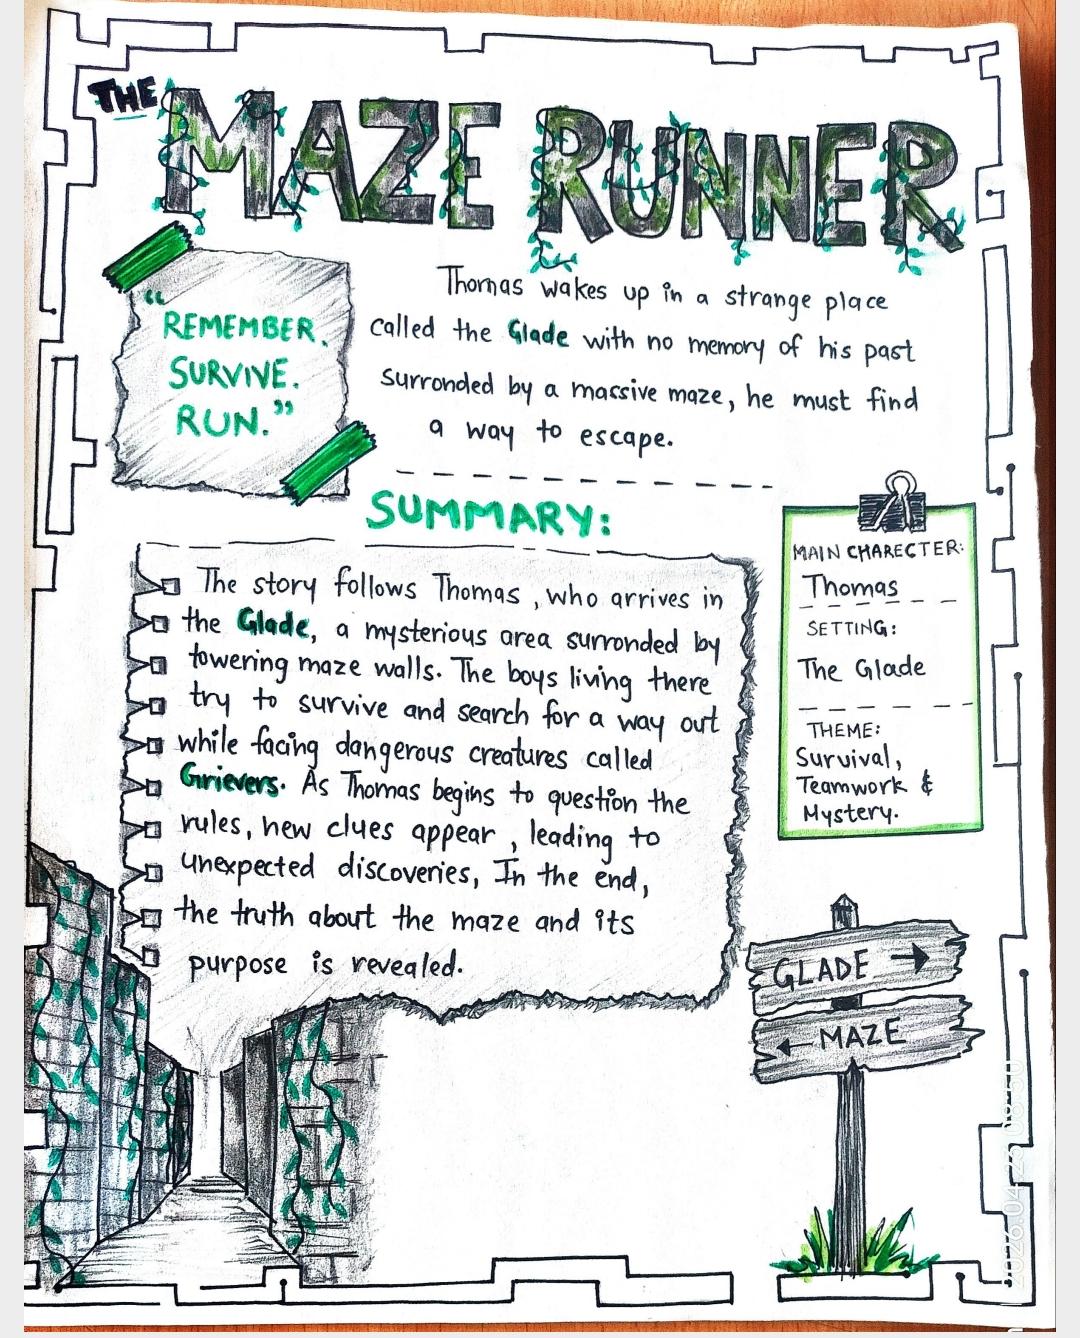 THE
MAZE RUNNER
“REMEMBER.
SURVIVE.
RUN.”
Thomas wakes up in a strange place
called the Glade with no memory of his past
surronded by a massive maze, he must find
a way to escape.
SUMMARY:
The story follows Thomas, who arrives in
the Glade, a mysterious area surronded by
towering maze walls. The boys living there
try to survive and search for a way out
while facing dangerous creatures called
Grievers. As Thomas begins to question the
rules, new clues appear, leading to
unexpected discoveries, In the end,
the truth about the maze and its
purpose is revealed.
MAIN CHARECTER:
Thomas
SETTING:
The Glade
THEME:
Survival,
Teamwork &
Mystery.
GLADE →
← MAZE